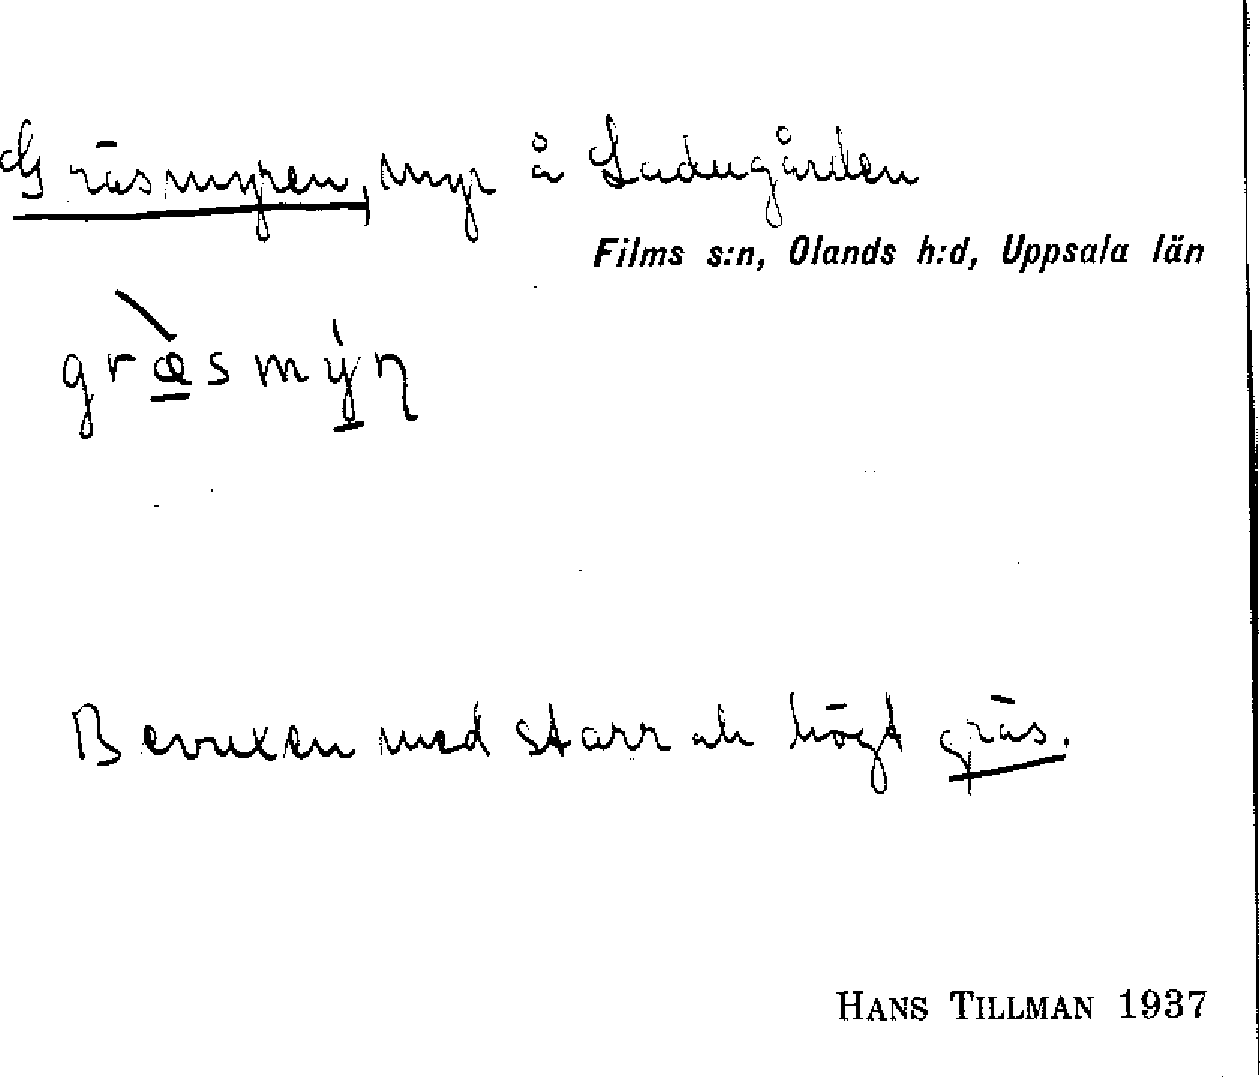 Gräsmyren, myr å Ladugården
Films s:n, Olands h:d, Uppsala län
græ̠̀smý̠ɳ
Bevuxen med starr och högt gräs.
HANS TILLMAN 1937